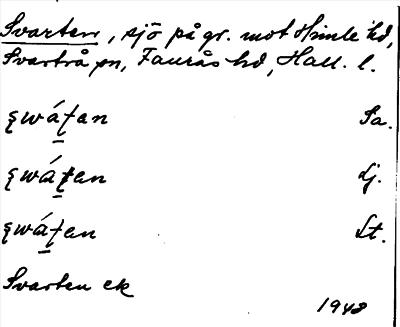 Svarten, sjö på gr. mot Himle hd,
Svartrå sn, Faurås hd, Hall. l.
ꞩwáʈan Sa.
ꞩwáʈan Lj.
ꞩwáʈan Lt.
Svarten ek
1948